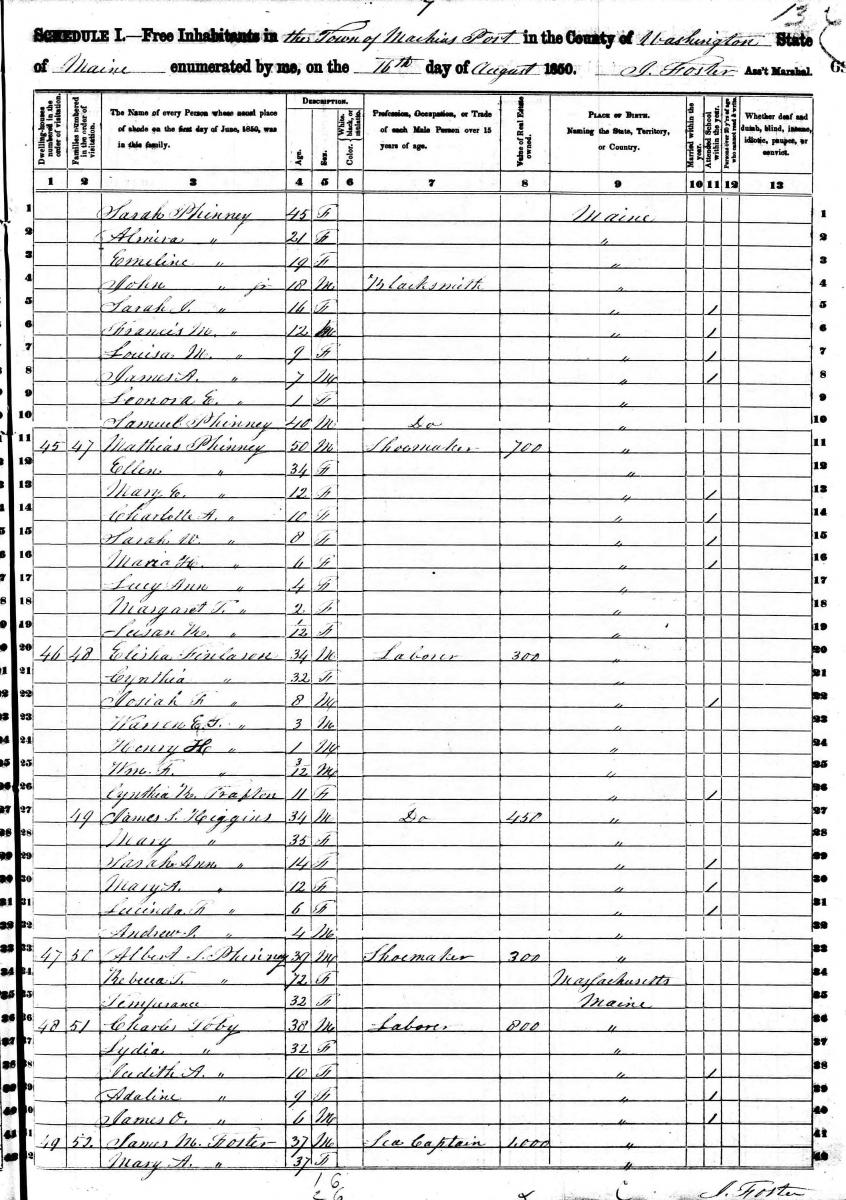 7
13
SCHEDULE I.—Free Inhabitants in the Town of Machias Port in the County of Washington State
of Maine enumerated by me, on the 16th day of August 1850. J. Foster Ass't Marshal.
Dwelling-houses numbered in the order of visitation.
Families numbered in the order of visitation.
The Name of every Person whose usual place of abode on the first day of June, 1850, was in this family.
DESCRIPTION.
Age.
Sex.
Color, White, black, or mulatto.
Profession, Occupation, or Trade of each Male Person over 15 years of age.
Value of Real Estate owned.
PLACE OF BIRTH. Naming the State, Territory, or Country.
Married within the year.
Attended School within the year.
Persons over 20 y'rs of age who cannot read & write.
Whether deaf and dumb, blind, insane, idiotic, pauper, or convict.
1 2 3 4 5 6 7 8 9 10 11 12 13
1 Sarah Phinney 45 F Maine 1
2 Almira " 21 F " 2
3 Emeline " 19 F " 3
4 John " jr 18 M Blacksmith " 4
5 Sarah J. " 16 F " 1 5
6 Francis M. " 12 M " 1 6
7 Louisa M. " 9 F " 1 7
8 James A. " 7 M " 1 8
9 Leonora E. " 1 F " 9
10 Samuel Phinney 40 M Do " 10
11 45 47 Mathias Phinney 50 M Shoemaker 700 " 11
12 Ellen " 34 F " 12
13 Mary E. " 12 F " 1 13
14 Charlotte A. " 10 F " 1 14
15 Sarah W. " 8 F " 1 15
16 Maria H. " 6 F " 1 16
17 Lucy Ann " 4 F " 17
18 Margaret T. " 2 F " 18
19 Susan M. " 1/12 F " 19
20 46 48 Elisha Finlason 34 M Laborer 300 " 20
21 Cynthia " 32 F " 21
22 Josiah F " 8 M " 1 22
23 Warren E. G. " 3 M " 23
24 Henry H " 1 M " 24
25 Wm. F. " 3/12 M " 25
26 Cynthia M. Trafton 11 F " 1 26
27 49 James S. Higgins 34 M Do 450 " 27
28 Mary " 35 F " 28
29 Sarah Ann " 14 F " 1 29
30 Mary A. " 12 F " 1 30
31 Lucinda F " 6 F " 1 31
32 Andrew J. " 4 M " 32
33 47 50 Albert S. Phinney 39 M Shoemaker 300 " 33
34 Rebecca T. " 72 F Massachusetts 34
35 Temperance 32 F Maine 35
36 48 51 Charles Toby 38 M Laborer 800 " 36
37 Lydia " 32 F " 37
38 Judith A. " 10 F " 1 38
39 Adaline " 9 F " 1 39
40 James O. " 6 M " 1 40
41 49 52. James M. Foster 37 M Sea Captain 1,000 " 41
42 Mary A. " 37 F "
16
26
J. Foster